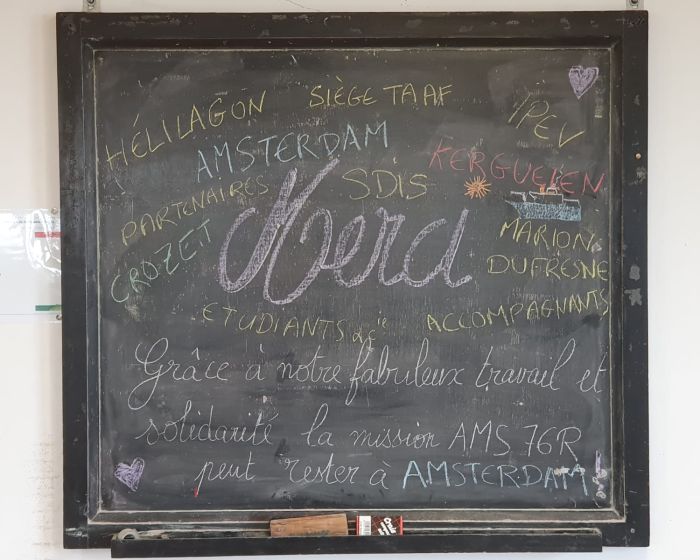 HÉLILAGON
SIÈGE TAAF
IPEV
AMSTERDAM
KERGUELEN
PARTENAIRES
SDIS
CROZET
Merci
MARION
DUFRESNE
ETUDIANTS
ACCOMPAGNANTS
Grâce à notre fabuleux travail et
solidarité la mission AMS 76R
peut rester à AMSTERDAM